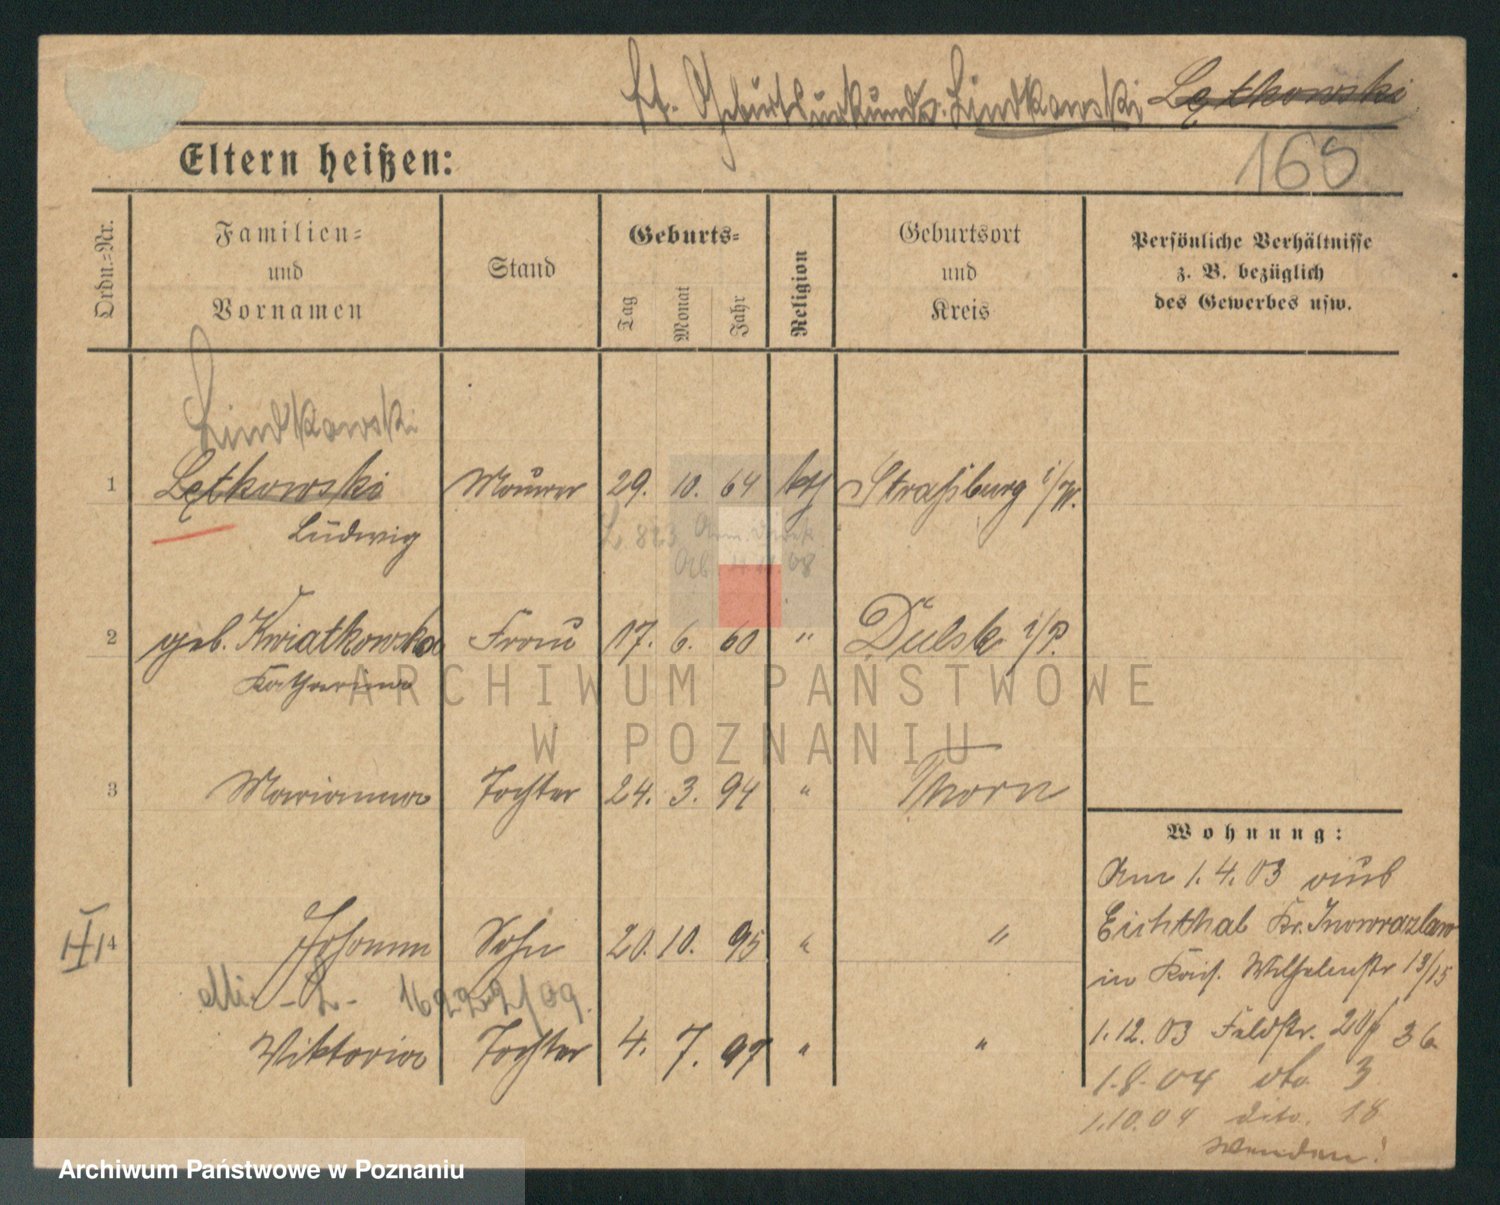 lt. Geburtsurkunde. Lindkowski Lętkowski
Eltern heißen:
165
Ordn.-Nr.
Familien- und Vornamen
Stand
Geburts-
Tag
Monat
Jahr
Religion
Geburtsort und Kreis
Persönliche Verhältnisse
z. B. bezüglich
des Gewerbes usw.
Lindkowski
1 Lętkowski Maurer 29. 10. 64 kth Straßburg i/W.
Ludwig
L 823
08
2 geb. Kwiatkowska Frau 17. 6. 60 " Dulsk i/P.
Katharina
ARCHIWUM PAŃSTWOWE
W POZNANIU
3 Marianna Tochter 24. 3. 94 " Thorn
Wohnung:
Am 1.4.03 aus
Eichthal Kr. Inowrazlaw
in Kais. Wilhelmstr 13/15
4 Johann Sohn 20. 10. 95 " "
1.12.03 Feldstr. 20
Viktoria Tochter 4. 7. 97 " "
1.8.04 dto 3
1.10.04 dito. 18
wenden!
Archiwum Państwowe w Poznaniu